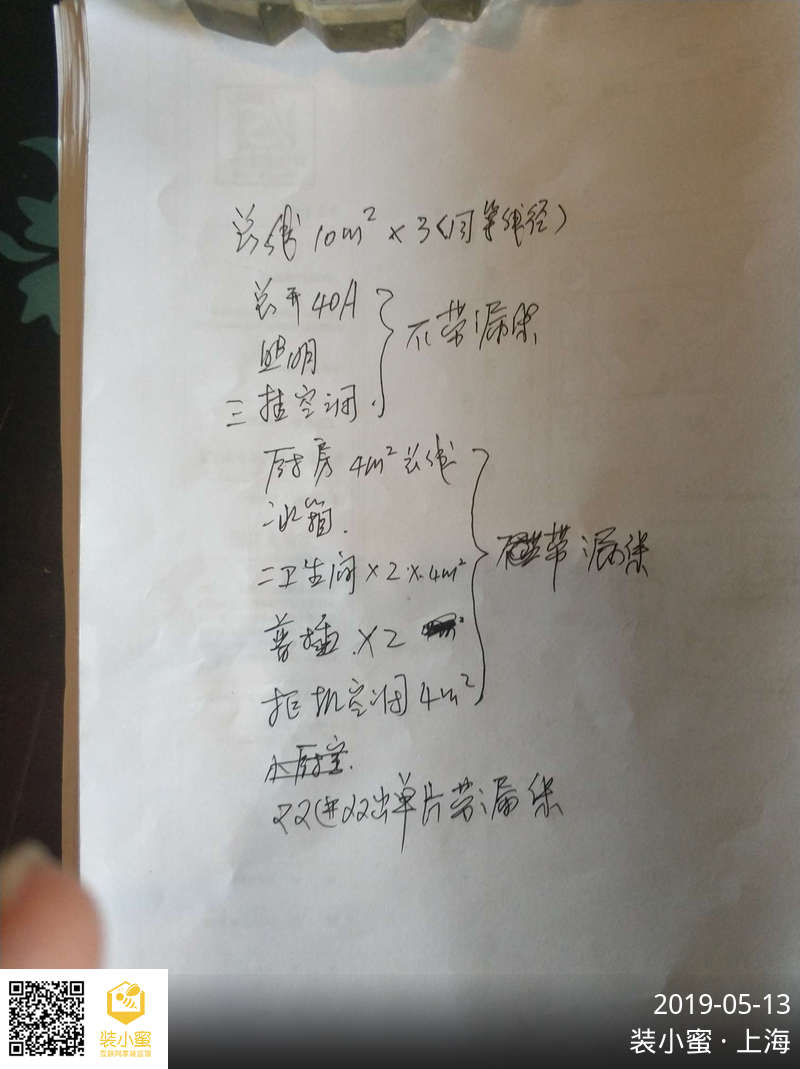 总线10m²×3(同等线径)
总开40A
照明
三挂空调
不带漏保
厨房4m²总线
冰箱.
二卫生间×2×4m²
普插×2
柜机空调4m²
带漏保
22进22出单片带漏保
装小蜜
互联网家装监理
2019-05-13
装小蜜·上海